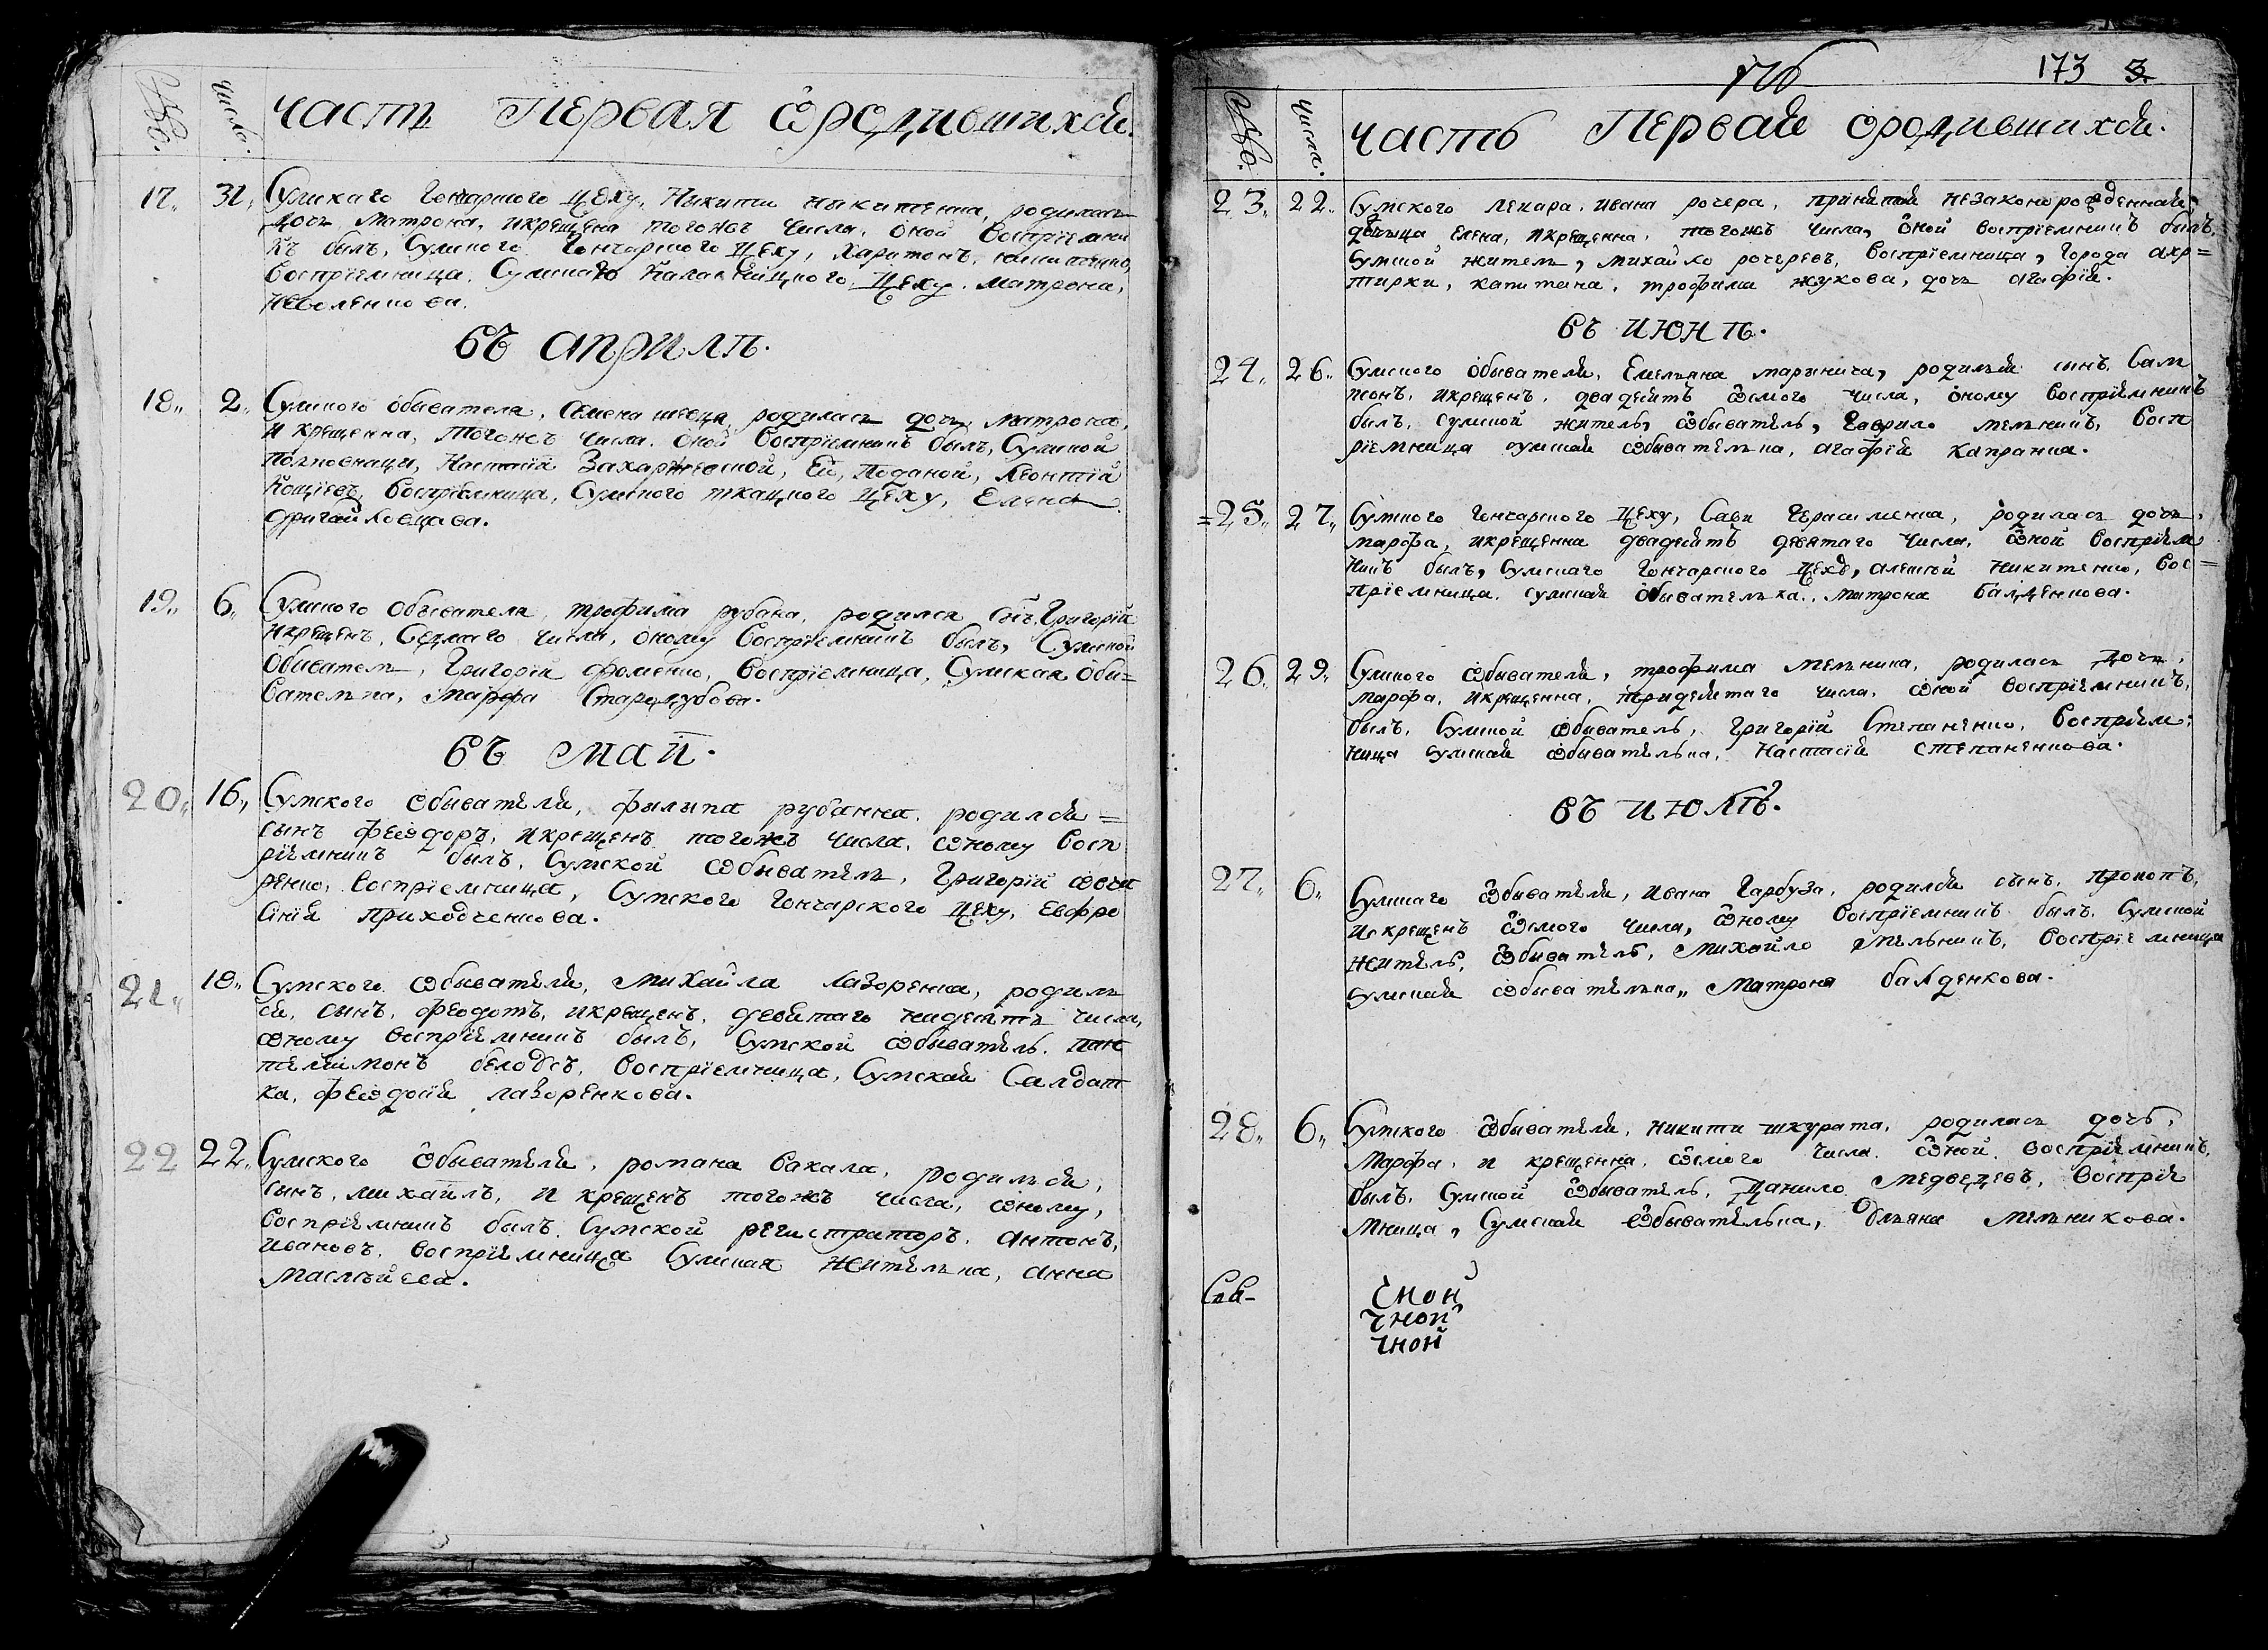 часть Первая ѡродившихся.
числа.
17. 31. Сумскаго Гончарного цеху, Никиты никитенка, родилась
дочь матрона, икрещена тогожъ числа, оной воспрїемни
къ былъ, Сумского Гончарского цеху, харитонъ,
воспрїемница, Сумского цеху, матрона,
неволенкова.
въ априлѣ.
18. 2. Сумского обывателя, семена швеца, родилась дочь, матрона,
и крещенна, тогожъ числа. оной воспрїемникъ былъ, Сумской
полковници, Настасїи Захаржевской, Ея, поданой, Леонтїй
Кощїевъ, воспрїемница, Сумского ткацкого цеху, Елена

19. 6. Сумского обывателя, трофима рубана, родился сынъ, Григорїй
икрещенъ, Седмаго числа, оному воспрїемникъ былъ, Сумской
обыватель, Григорїй фоменко, воспрїемница, Сумская обы=
вателька, марфа Стародубова.
въ маѣ.
20. 16. Сумского ѡбывателя, филипа рубанка, родился =
сынъ феѡдоръ, икрещенъ тогожъ числа, ѡному восп
рїемникъ былъ, Сумской ѡбыватель, Григорїй
ренко, воспрїемница, Сумского гончарского цеху, Евфро
сїнїя приходченкова.
21. 18. Сумского ѡбывателя, михайла лазоренка, родил
ся, сынъ, феодотъ, икрещенъ, девятаго надесять числа,
ѡному воспрїемникъ былъ, Сумской ѡбыватель. пан
телиймонъ белодѣдъ, воспрїемница, Сумская Салдат
ка, феѡдосїя лазоренкова.
22 22. Сумского ѡбывателя, романа бакала, родился,
сынъ, михаилъ, и крещенъ тогожъ числа, ѡному,
воспрїемникъ былъ Сумской регистраторъ, антонъ,
Ивановъ, воспрїемница Сумская жителька, анна

173 3
часть Первая ородившихся.
числа.
23. 22. Сумского лекара, ивана рочера, принятой незаконорожденная
дочъ елена, икрещенна, тогожъ числа, ѡной воспрїемникъ былъ,
Сумской житель, михайло рочеревъ, воспрїемница, города ахр=
тирки, капитана, трофима жукова, дочь агафїя.
въ июнѣ.
24. 26. Сумского обывателя, Емельяна марынича, родился сынъ Сам
псонъ, икрещенъ, двадесятъ ѡсмого числа, оному воспрїемникъ
былъ, сумской житель, ѡбыватель, гаврило мельникъ, восп
рїемница сумская ѡбывателька, агафїя капранка.
=25. 27. Сумского гончарского цеху, Савы Герасименка, родилась дочь,
марфа, икрещенна двадесятъ девятаго числа, ѡной воспрїем
никъ былъ, Сумскаго гончарского цеху, алексѣй Никитенко, вос=
прїемница, сумская обывателька, матрона балденкова.
26. 29. Сумского ѡбывателя, трофима мельника, родилась дочь,
марфа, икрещенна, тридесятаго числа, ѡной воспрїемникъ,
былъ, Сумской ѡбыватель, Григорїй Степаненко, воспрїем=
ница сумская ѡбывателька, настасїя степаненкова.
въ июлѣ.
27. 6. Сумскаго ѡбывателя, ивана гарбуза, родился сынъ, прокопъ,
искрещенъ ѡсмого числа, ѡному воспрїемникъ былъ, Сумской
житель, ѡбыватель, михайло мельникъ, воспрїемница
Сумская ѡбывателька, матрона балденкова.
28. 6. Сумского ѡбывателя, никити шкурата, родилась дочь,
марфа, и крещенна, ѡсмого числа, ѡной, воспрїемникъ,
былъ, Сумской ѡбыватель, Данило медведевъ, воспрїе
мница, Сумская ѡбывателька, Ольяна мельникова.